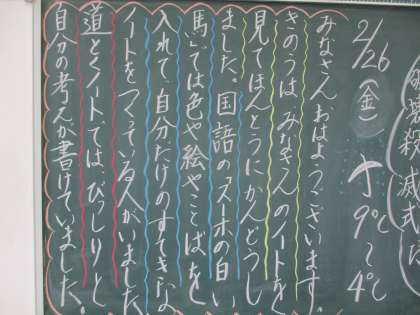 2/26(金) 9℃〜4℃
みなさん、おはようございます。
きのうは、みなさんのノートを
見てほんとうにかんどうし
ました。国語の「スーホの白い
馬」では色や絵やことばを
入れて、自分だけのすてきな
ノートをつくっている人がいました。
道とくノートでは、びっしりと
自分の考えが書けていました。